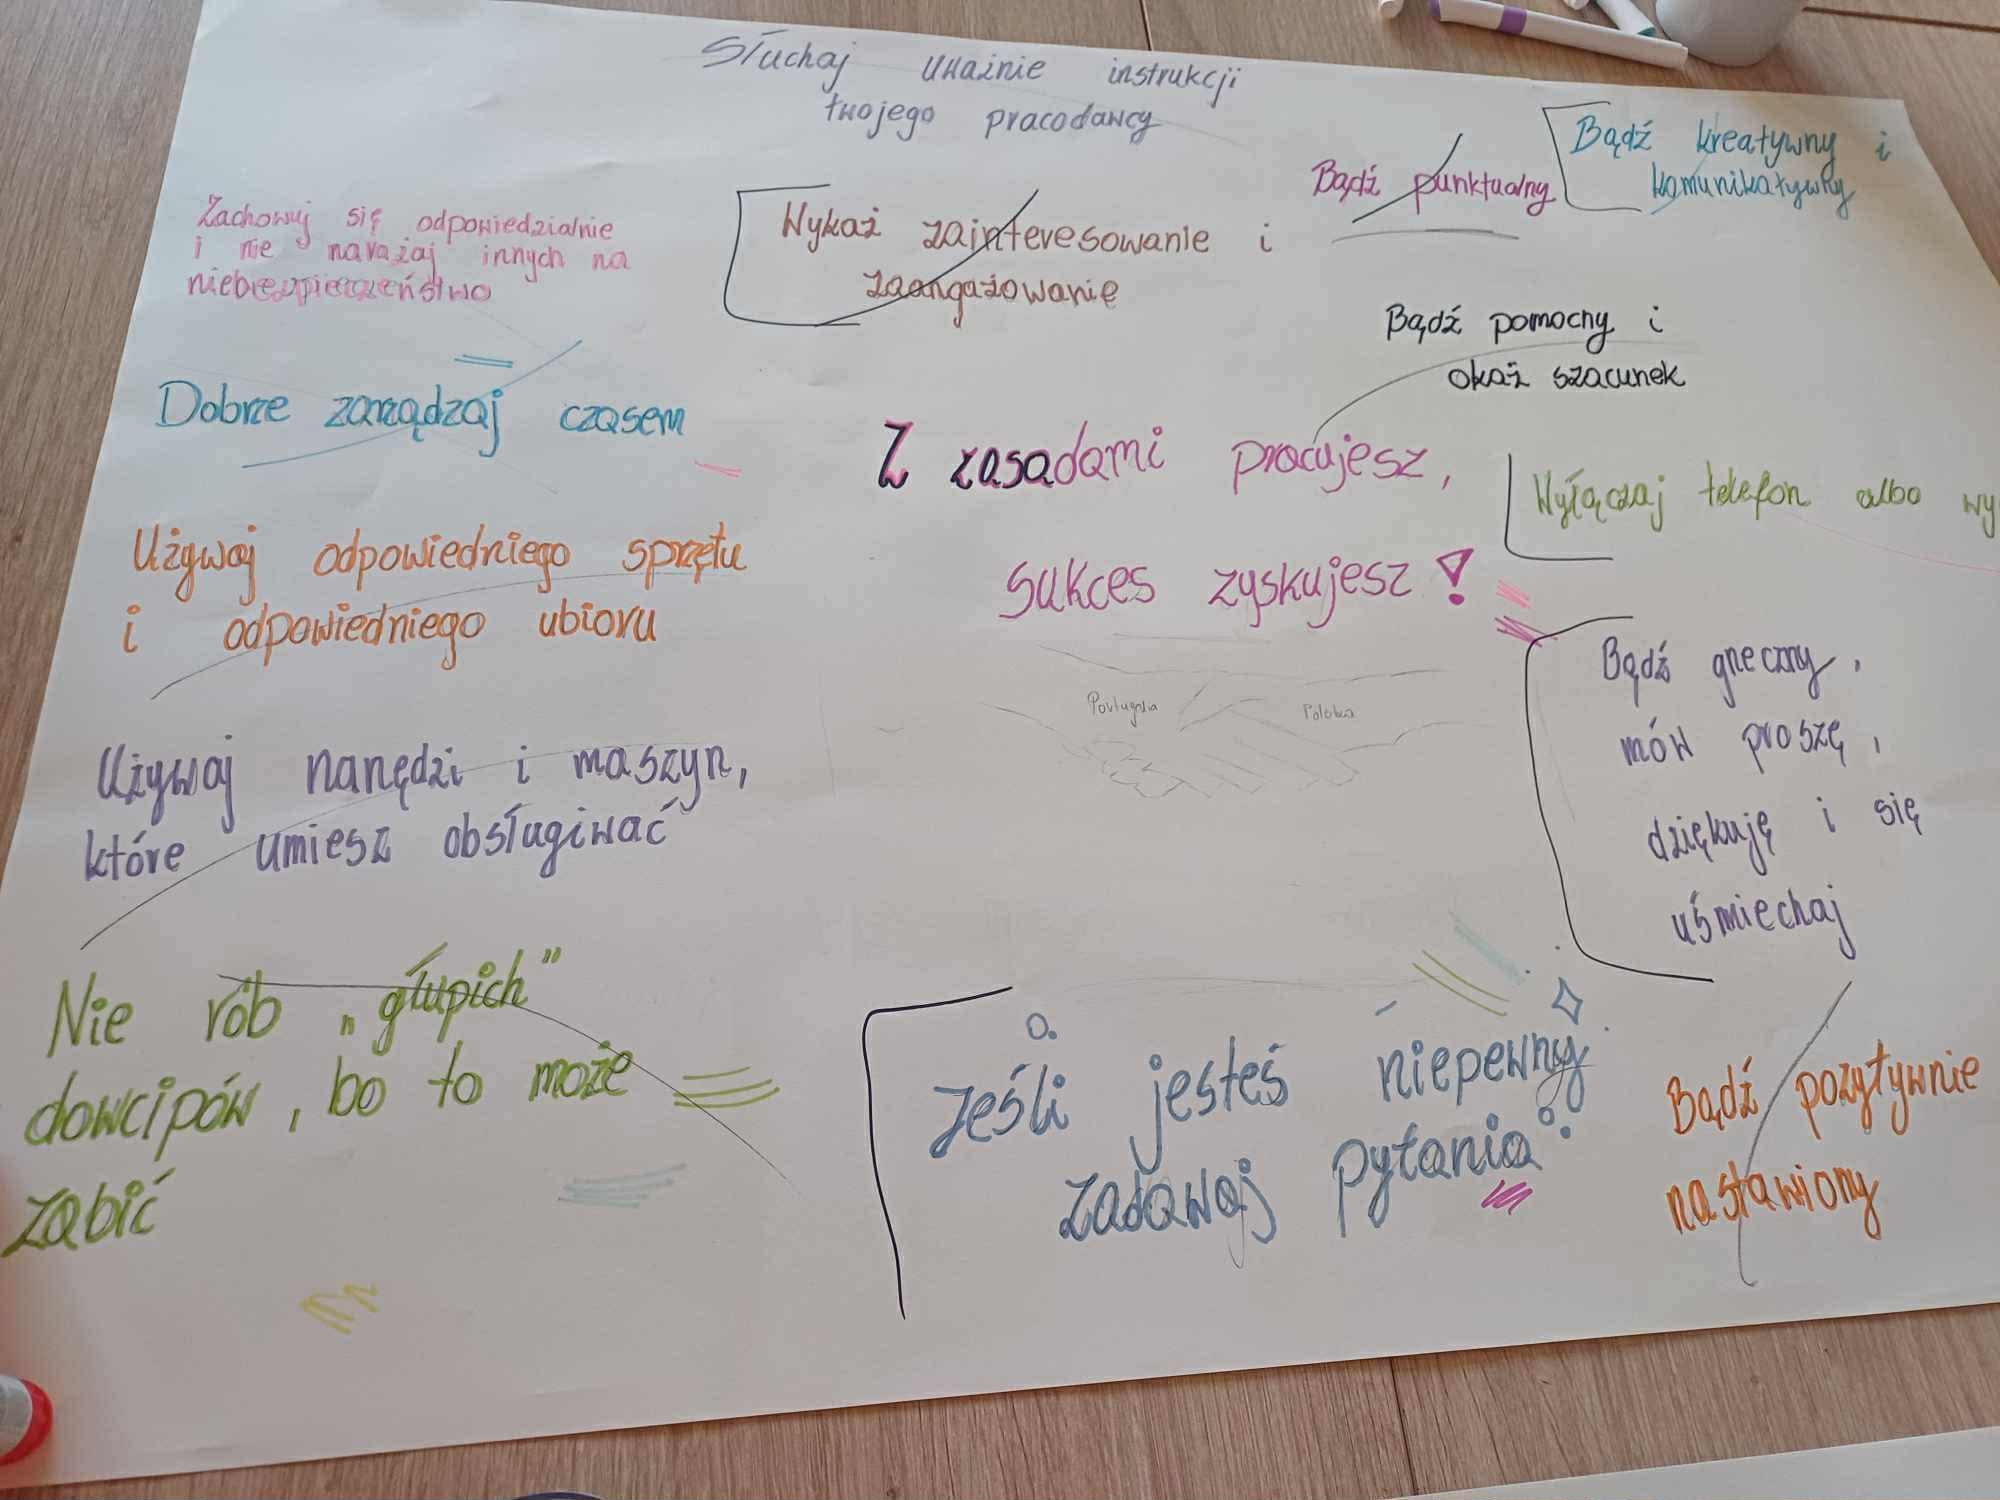 Słuchaj uważnie instrukcji
twojego pracodawcy
Bądź kreatywny i
komunikatywny
Bądź punktualny
Wykaż zainteresowanie i
zaangażowanie
Zachowuj się odpowiedzialnie
i nie narażaj innych na
niebezpieczeństwo
Bądź pomocny i
okaż szacunek
Dobrze zarządzaj czasem
Z zasadami pracujesz,
sukces zyskujesz!
Wyłączaj telefon albo wy
Używaj odpowiedniego sprzętu
i odpowiedniego ubioru
Bądź grzeczny,
mów proszę,
dziękuję i się
uśmiechaj
Portugalia
Polska
Używaj narzędzi i maszyn,
które umiesz obsługiwać
Nie rób „głupich"
dowcipów, bo to może
zabić
Jeśli jesteś niepewny
zadawaj pytania
Bądź pozytywnie
nastawiony